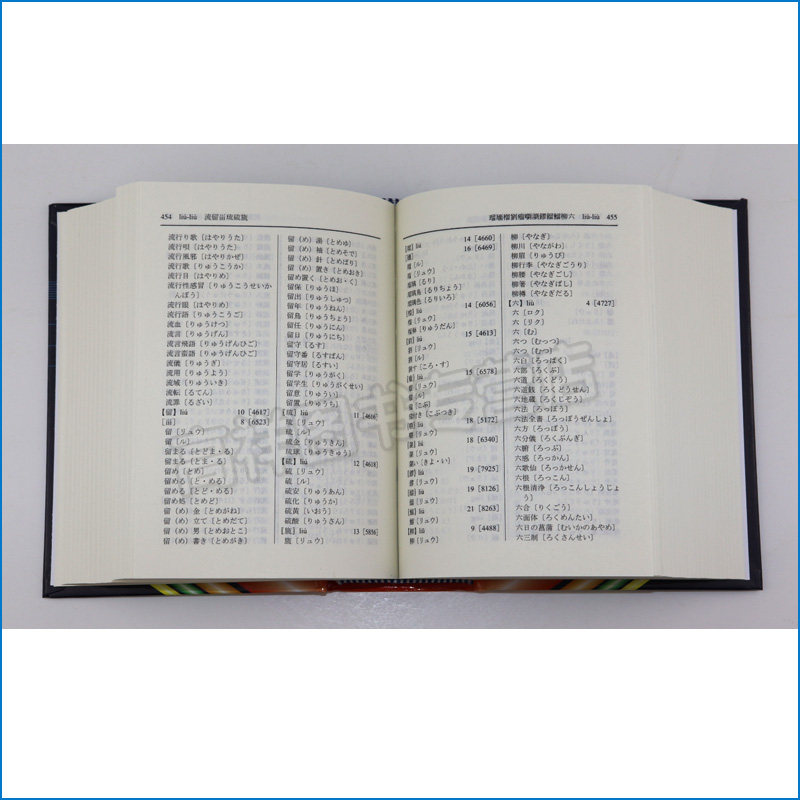 454 liú-liù 流留畄琉硫旒
流行り歌〔はやりうた〕
流行唄〔はやりうた〕
流行風邪〔はやりかぜ〕
流行歌〔りゅうこうか〕
流行目〔はやりめ〕
流行性感冒〔りゅうこうせいか
んぼう〕
流行眼〔はやりめ〕
流行語〔りゅうこうご〕
流血〔りゅうけつ〕
流言〔りゅうげん〕
流言飛語〔りゅうげんひご〕
流言蜚語〔りゅうげんひご〕
流儀〔りゅうぎ〕
流用〔りゅうよう〕
流域〔りゅういき〕
流転〔るてん〕
流罪〔るざい〕
【留】liú 10 [4617]
[畄] 8 [6523]
留〔リュウ〕
留〔ル〕
留まる〔とどま・る〕
留まる〔と ま・る〕
留め〔とめ〕
留める〔と・める〕
留める〔とど・める〕
留め処〔とめど〕
留(め)金〔とめがね〕
留(め)立て〔とめだて〕
留(め)男〔とめおとこ〕
留(め)書き〔とめがき〕
留(め)湯〔とめゆ〕
留(め)袖〔とめそで〕
留(め)針〔とめばり〕
留(め)置き〔とめおき〕
留め置く〔とめお・く〕
留保〔りゅうほ〕
留出〔りゅうしゅつ〕
留年〔りゅうねん〕
留鳥〔りゅうちょう〕
留任〔りゅうにん〕
留日〔りゅうにち〕
留守〔るす〕
留守番〔るすばん〕
留守居〔るすい〕
留学〔りゅうがく〕
留学生〔りゅうがくせい〕
留意〔りゅうい〕
留置〔りゅうち〕
【琉】liú 11 [4616]
琉〔リュウ〕
琉〔ル〕
琉金〔りゅうきん〕
琉球〔りゅうきゅう〕
【硫】liú 12 [4618]
硫〔リュウ〕
硫〔ル〕
硫安〔りゅうあん〕
硫化〔りゅうか〕
硫黄〔いおう〕
硫酸〔りゅうさん〕
[旒] liú 13 [5856]
旒〔リュウ〕
liú-liù 455
liú 14 [4660]
16 [6469]
瑠〔ル〕
瑠〔リュウ〕
瑠璃〔るり〕
瑠璃鳥〔るりちょう〕
瑠璃色〔るりいろ〕
[榴] liú 14 [6056]
榴〔リュウ〕
榴弾〔りゅうだん〕
[劉] liú 15 [4613]
劉〔リュウ〕
劉〔ル〕
劉す〔ころ・す〕
[瘤] liú 15 [6578]
瘤〔リュウ〕
瘤〔ル〕
瘤〔こぶ〕
瘤付き〔こぶつき〕
liú 18 [5172]
〔リュウ〕
liú 18 [6340]
〔リュウ〕
〔きよ・い〕
liú 19 [7925]
〔リュウ〕
liú 19 [8126]
〔リュウ〕
liú 21 [8263]
〔リュウ〕
[柳] liǔ 9 [4488]
柳〔リュウ〕
柳〔やなぎ〕
柳川〔やながわ〕
柳眉〔りゅうび〕
柳行李〔やなぎごうり〕
柳腰〔やなぎごし〕
柳箸〔やなぎばし〕
柳樽〔やなぎだる〕
【六】liù 4 [4727]
六〔ロク〕
六〔リク〕
六〔む〕
六つ〔むっつ〕
六つ〔むつ〕
六白〔ろっぱく〕
六部〔ろくぶ〕
六道〔ろくどう〕
六道銭〔ろくどうせん〕
六地蔵〔ろくじぞう〕
六法〔ろっぽう〕
六法全書〔ろっぽうぜんしょ〕
六方〔ろっぽう〕
六分儀〔ろくぶんぎ〕
六腑〔ろっぷ〕
六感〔ろっかん〕
六歌仙〔ろっかせん〕
六根〔ろっこん〕
六根清浄〔ろっこんしょうじょ
う〕
六合〔りくごう〕
六面体〔ろくめんたい〕
六日の菖蒲〔むいかのあやめ〕
六三制〔ろくさんせい〕